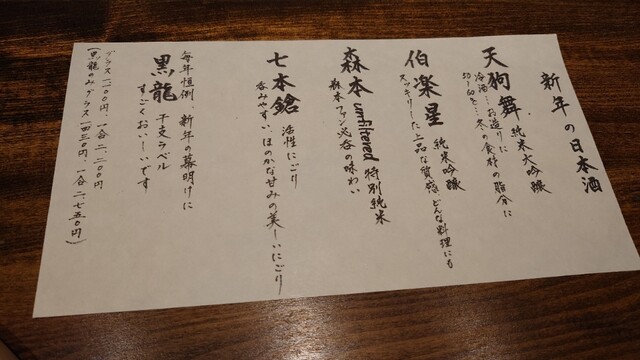 新年の日本酒
天狗舞 純米大吟醸
冷酒…お造りに
50〜60℃…冬の食材の脂分に
伯楽星 純米吟醸
スッキリした上品な質感 どんな料理にも
森本 unfiltered 特別純米
森本ファン必呑の味わい
七本鎗 活性にごり
呑みやすい、ほのかな甘みの美しいにごり
毎年恒例、新年の幕明けに
黒龍 干支ラベル
すごくおいしいです
グラス一一〇〇円、一合二二〇〇円
(黒龍のみグラス一四三〇円、一合二七五〇円)